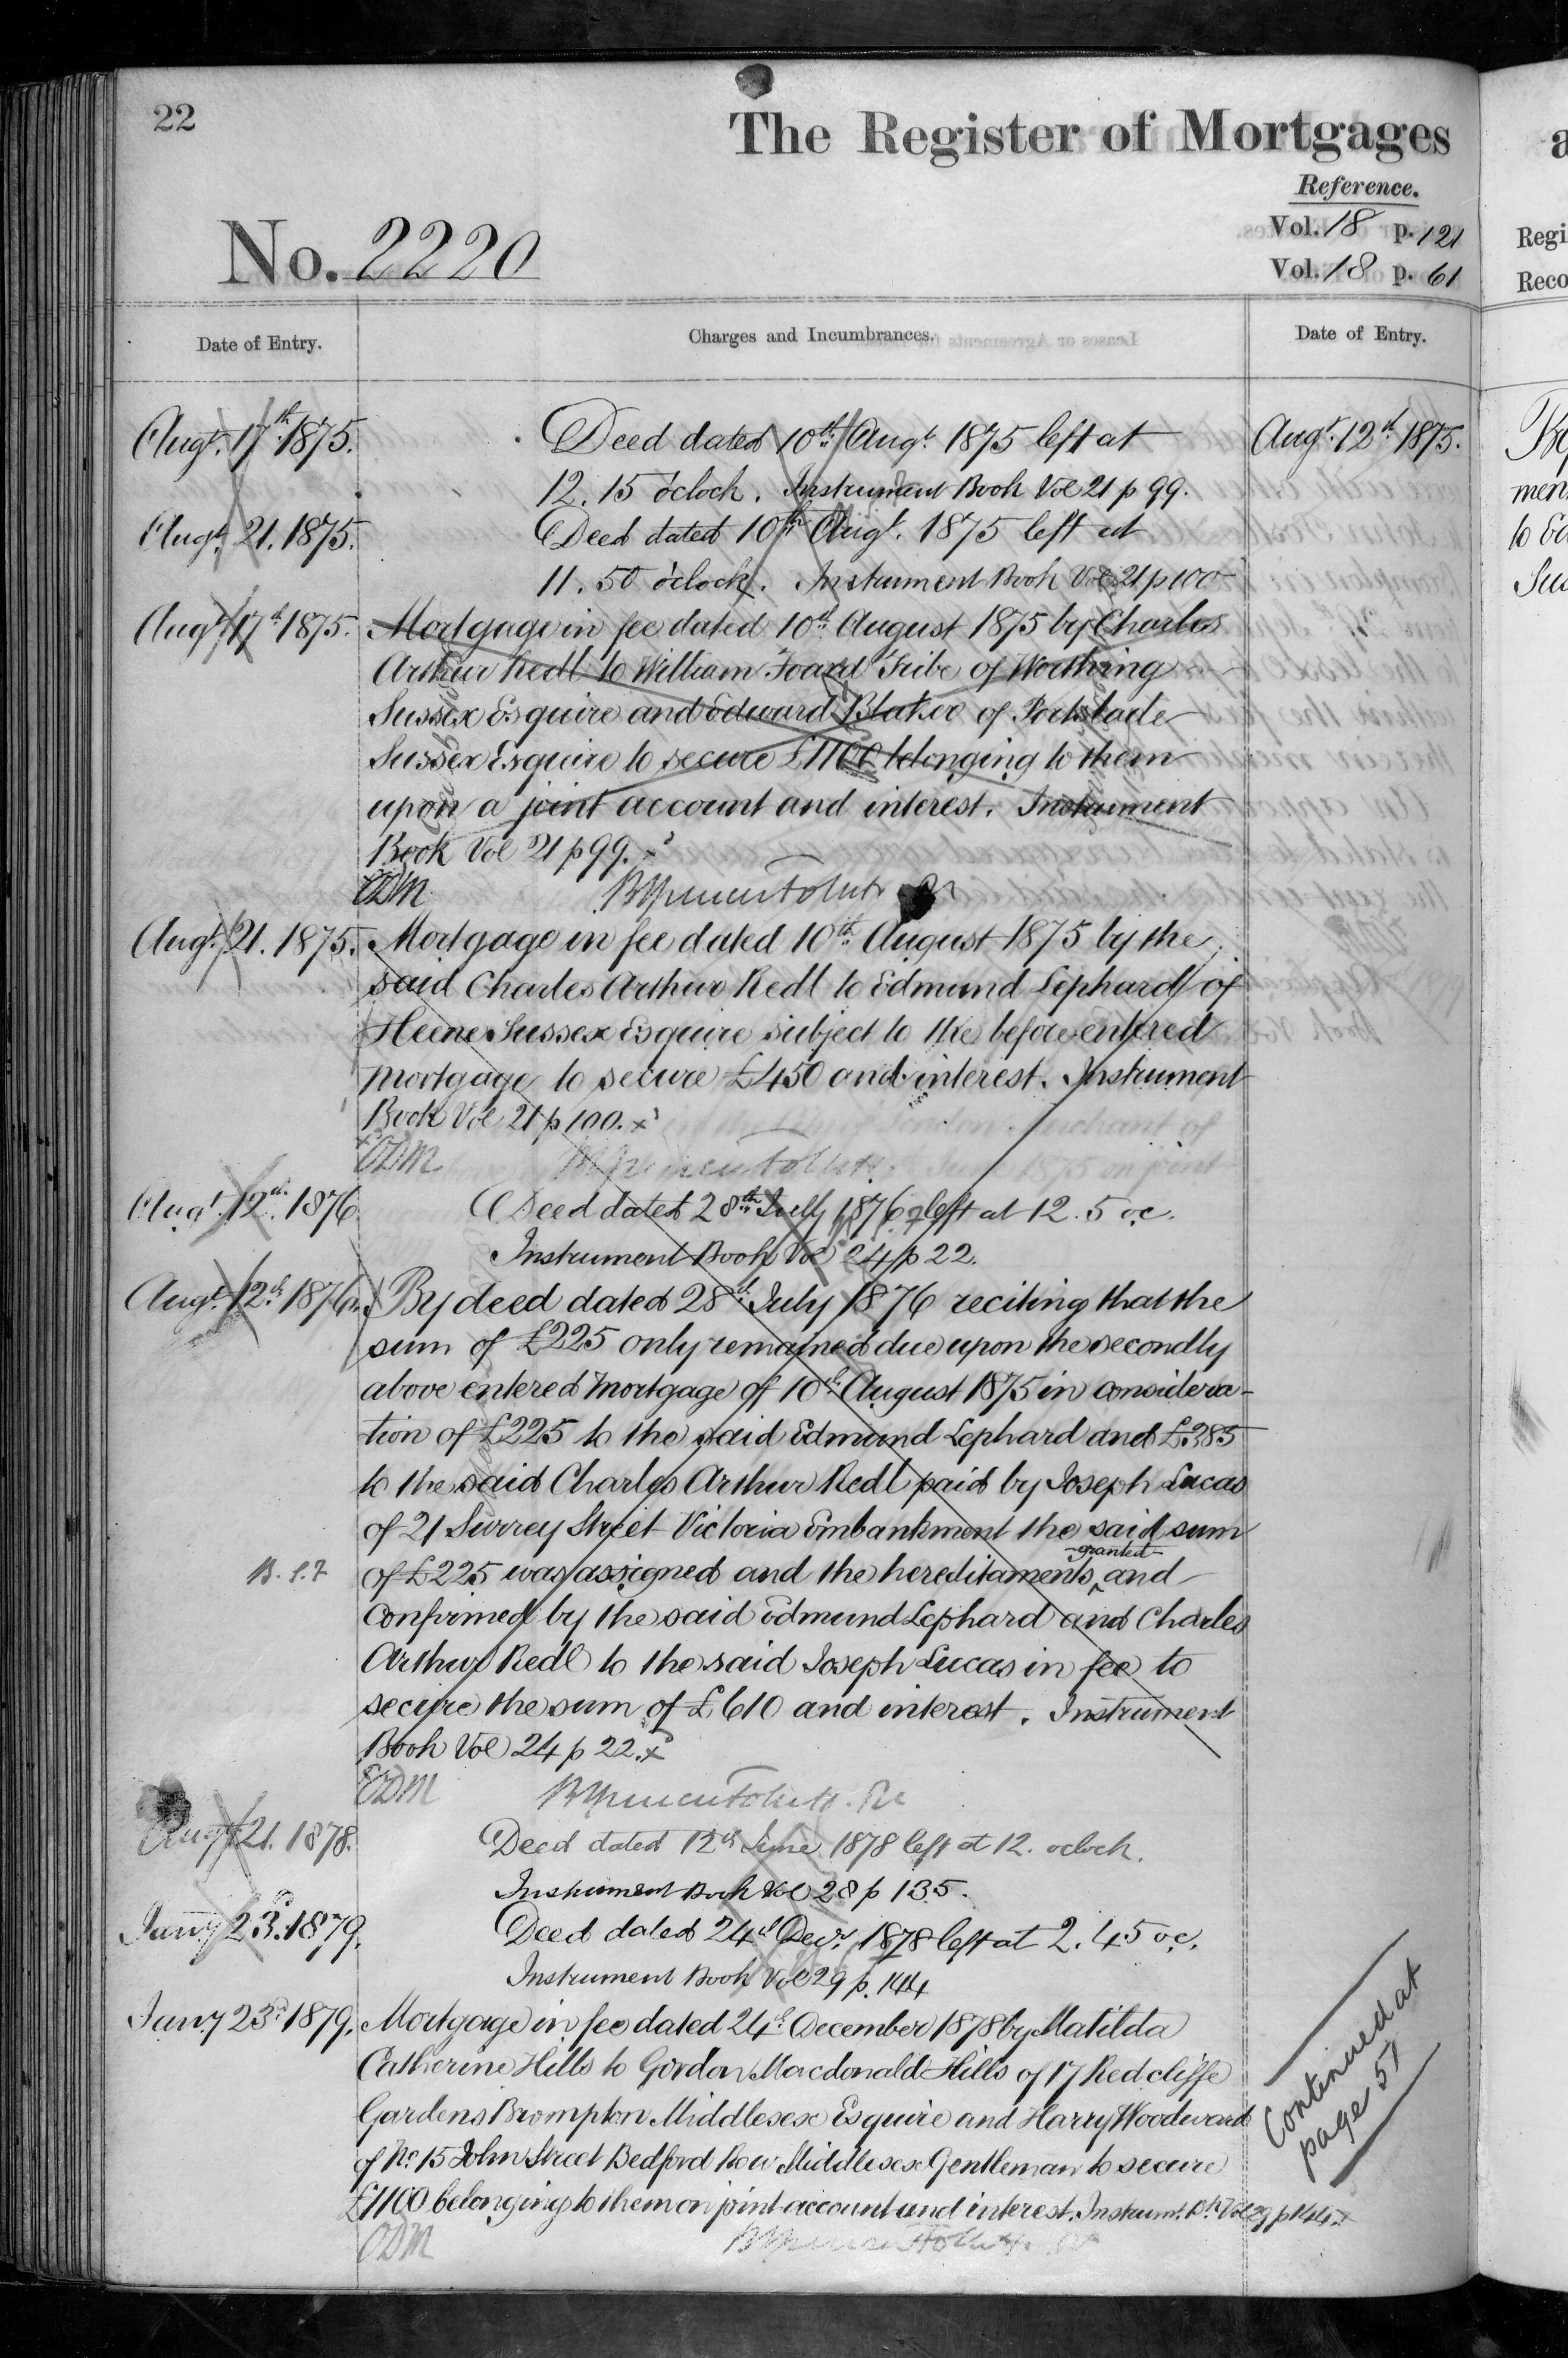 22
The Register of Mortgages
Reference.
No. 2220
Vol. 18 p. 121
Vol. 18 p. 61
Date of Entry.
Charges and Incumbrances.
Date of Entry.
Augt. 17th 1875.
Deed dated 10th Augt. 1875 left at
Augt. 12th 1875.
12.15 o'clock. Instrument Book Vol 21 p 99.
Augt. 21. 1875.
Deed dated 10th Augt. 1875 left at
11.50 o'clock. Instrument Book Vol. 21 p 100
Augt. 17th 1875.
Mortgage in fee dated 10th August 1875 by Charles
Arthur Redl to William Foard Tribe of Worthing
Sussex Esquire and Edward Blaker of Portslade
Sussex Esquire to secure £1100 belonging to them
upon a joint account and interest. Instrument
Book Vol 21 p 99. x
ODM
Augt. 21. 1875.
Mortgage in fee dated 10th August 1875 by the
said Charles Arthur Redl to Edmund Lephard of
Heene Sussex Esquire subject to the before entered
mortgage to secure £450 and interest. Instrument
Book Vol 21 p 100. x
ODM
Augt. 12th 1876.
Deed dated 28th July 1876 left at 12.5 oc.
Instrument Book Vol 24 p 22.
Augt. 12th 1876.
By deed dated 28th July 1876 reciting that the
sum of £225 only remained due upon the secondly
above entered Mortgage of 10th August 1875 in considera-
tion of £225 to the said Edmund Lephard and £385
to the said Charles Arthur Redl paid by Joseph Lucas
of 21 Surrey Street Victoria Embankment the said sum
granted
of £225 was assigned and the hereditaments ^ and
confirmed by the said Edmund Lephard and Charles
Arthur Redl to the said Joseph Lucas in fee to
secure the sum of £610 and interest. Instrument
Book Vol 24 p 22. x
ODM
Augt. 21. 1878.
Deed dated 12th June 1878 left at 12. oclock.
Instrument Book Vol 28 p 135.
Jany 23d. 1879.
Deed dated 24th Decr. 1878 left at 2.45 oc.
Instrument Book Vol 29 p. 144
Jany 23d 1879.
Mortgage in fee dated 24th December 1878 by Matilda
Catherine Hills to Gordon Macdonald Hills of 17 Redcliffe
Gardens Brompton Middlesex Esquire and Harry Woodward
of No. 15 John Street Bedford Row Middlesex Gentleman to secure
£1100 belonging to them on joint account and interest. Instrumt. Bk. Vol 29 p 144. x
ODM
Continued at
page 51